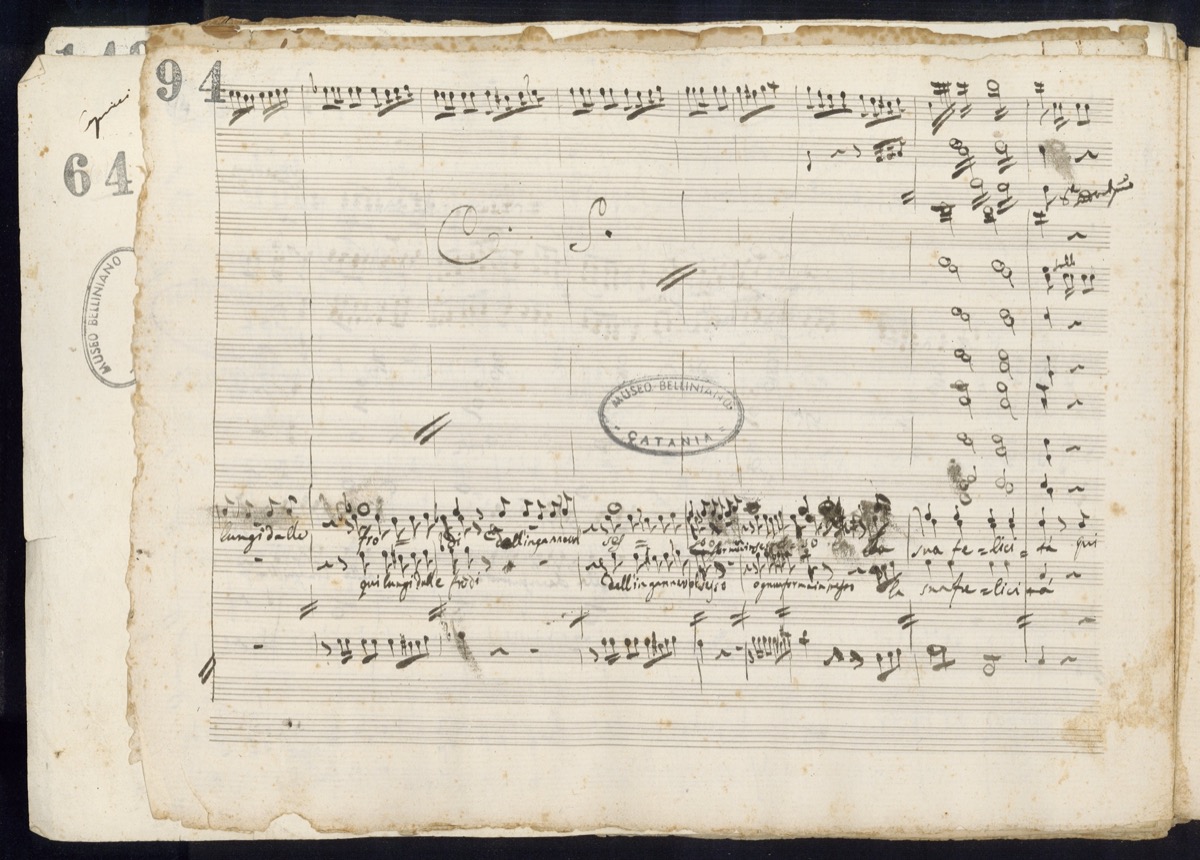 94
64
MUSEO BELLINIANO
C. S.
MUSEO BELLINIANO
CATANIA
lungi dalle fro = di dell'ingannevol ses = so la sua fe = lici = tà qui
qui lungi dalle frodi dell'ingannevol sesso la sua fe = lici = tà